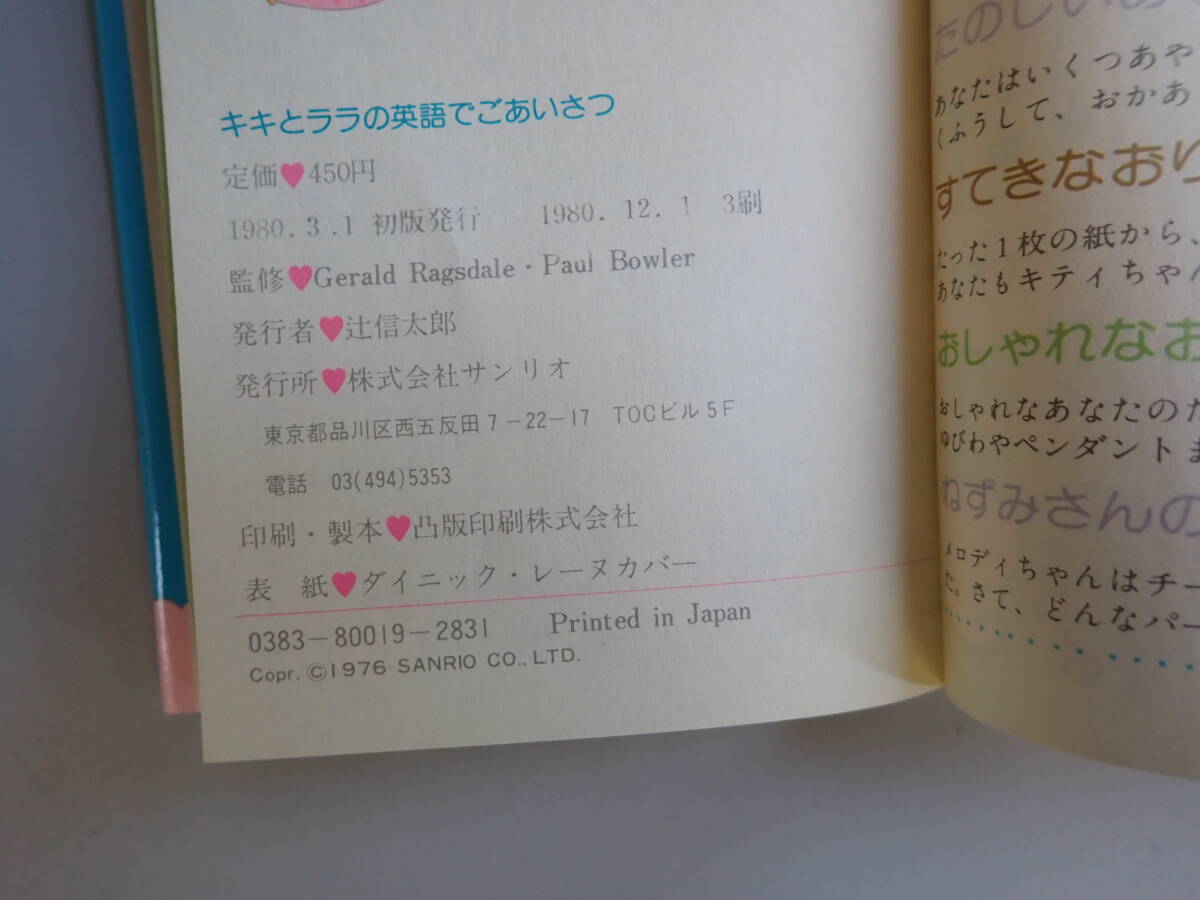 キキとララの英語でごあいさつ
定価♥450円
1980.3.1 初版発行 1980.12.1 3刷
監修♥Gerald Ragsdale・Paul Bowler
発行者♥辻信太郎
発行所♥株式会社サンリオ
東京都品川区西五反田7-22-17 TOCビル5F
電話 03(494)5353
印刷・製本♥凸版印刷株式会社
表 紙♥ダイニック・レーヌカバー
0383-80019-2831 Printed in Japan
Copr. ©1976 SANRIO CO., LTD.
たのしいあ
あなたはいくつあや
くふうして、おかあ
すてきなおり
たった1枚の紙から、
あなたもキティちゃん
おしゃれなお
おしゃれなあなたのた
ゆびわやペンダントま
ねずみさんの
メロディちゃんはチー
た。さて、どんなパー